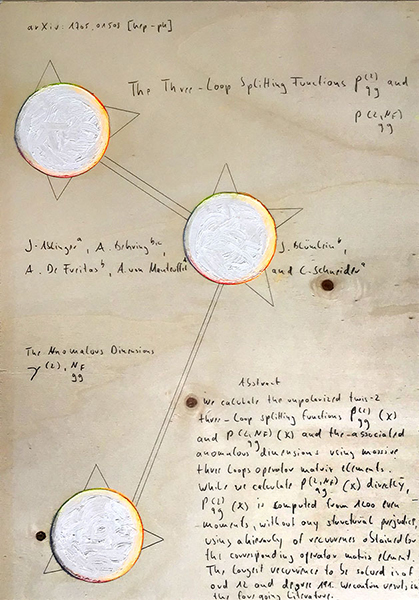 arXiv: 1705.01508 [hep-ph]
The Three-Loop Splitting Functions P(2)gg and
P(2,NF)gg
J. Ablinger a, A. Behring b,c, J. Blümlein b,
A. De Freitas b, A. von Manteuffel d and C. Schneider a
The Anomalous Dimensions
γ(2),NF gg
Abstract
We calculate the unpolarized twis-2
three-loop splitting functions P(2)gg (x)
and P(2,NF)gg (x) and the associated
anomalous dimensions using massive
three loops operator matrix elements.
While we calculate P(2,NF)gg (x) directly,
P(2)gg (x) is computed from 1200 even
moments, without any structural prejudice,
using a hierarchy of recurrences obtained for
the corresponding operator matrix element.
The largest recurrence to be solved is of
ord 12 and degree 191. We confirm results in
the foregoing literature.